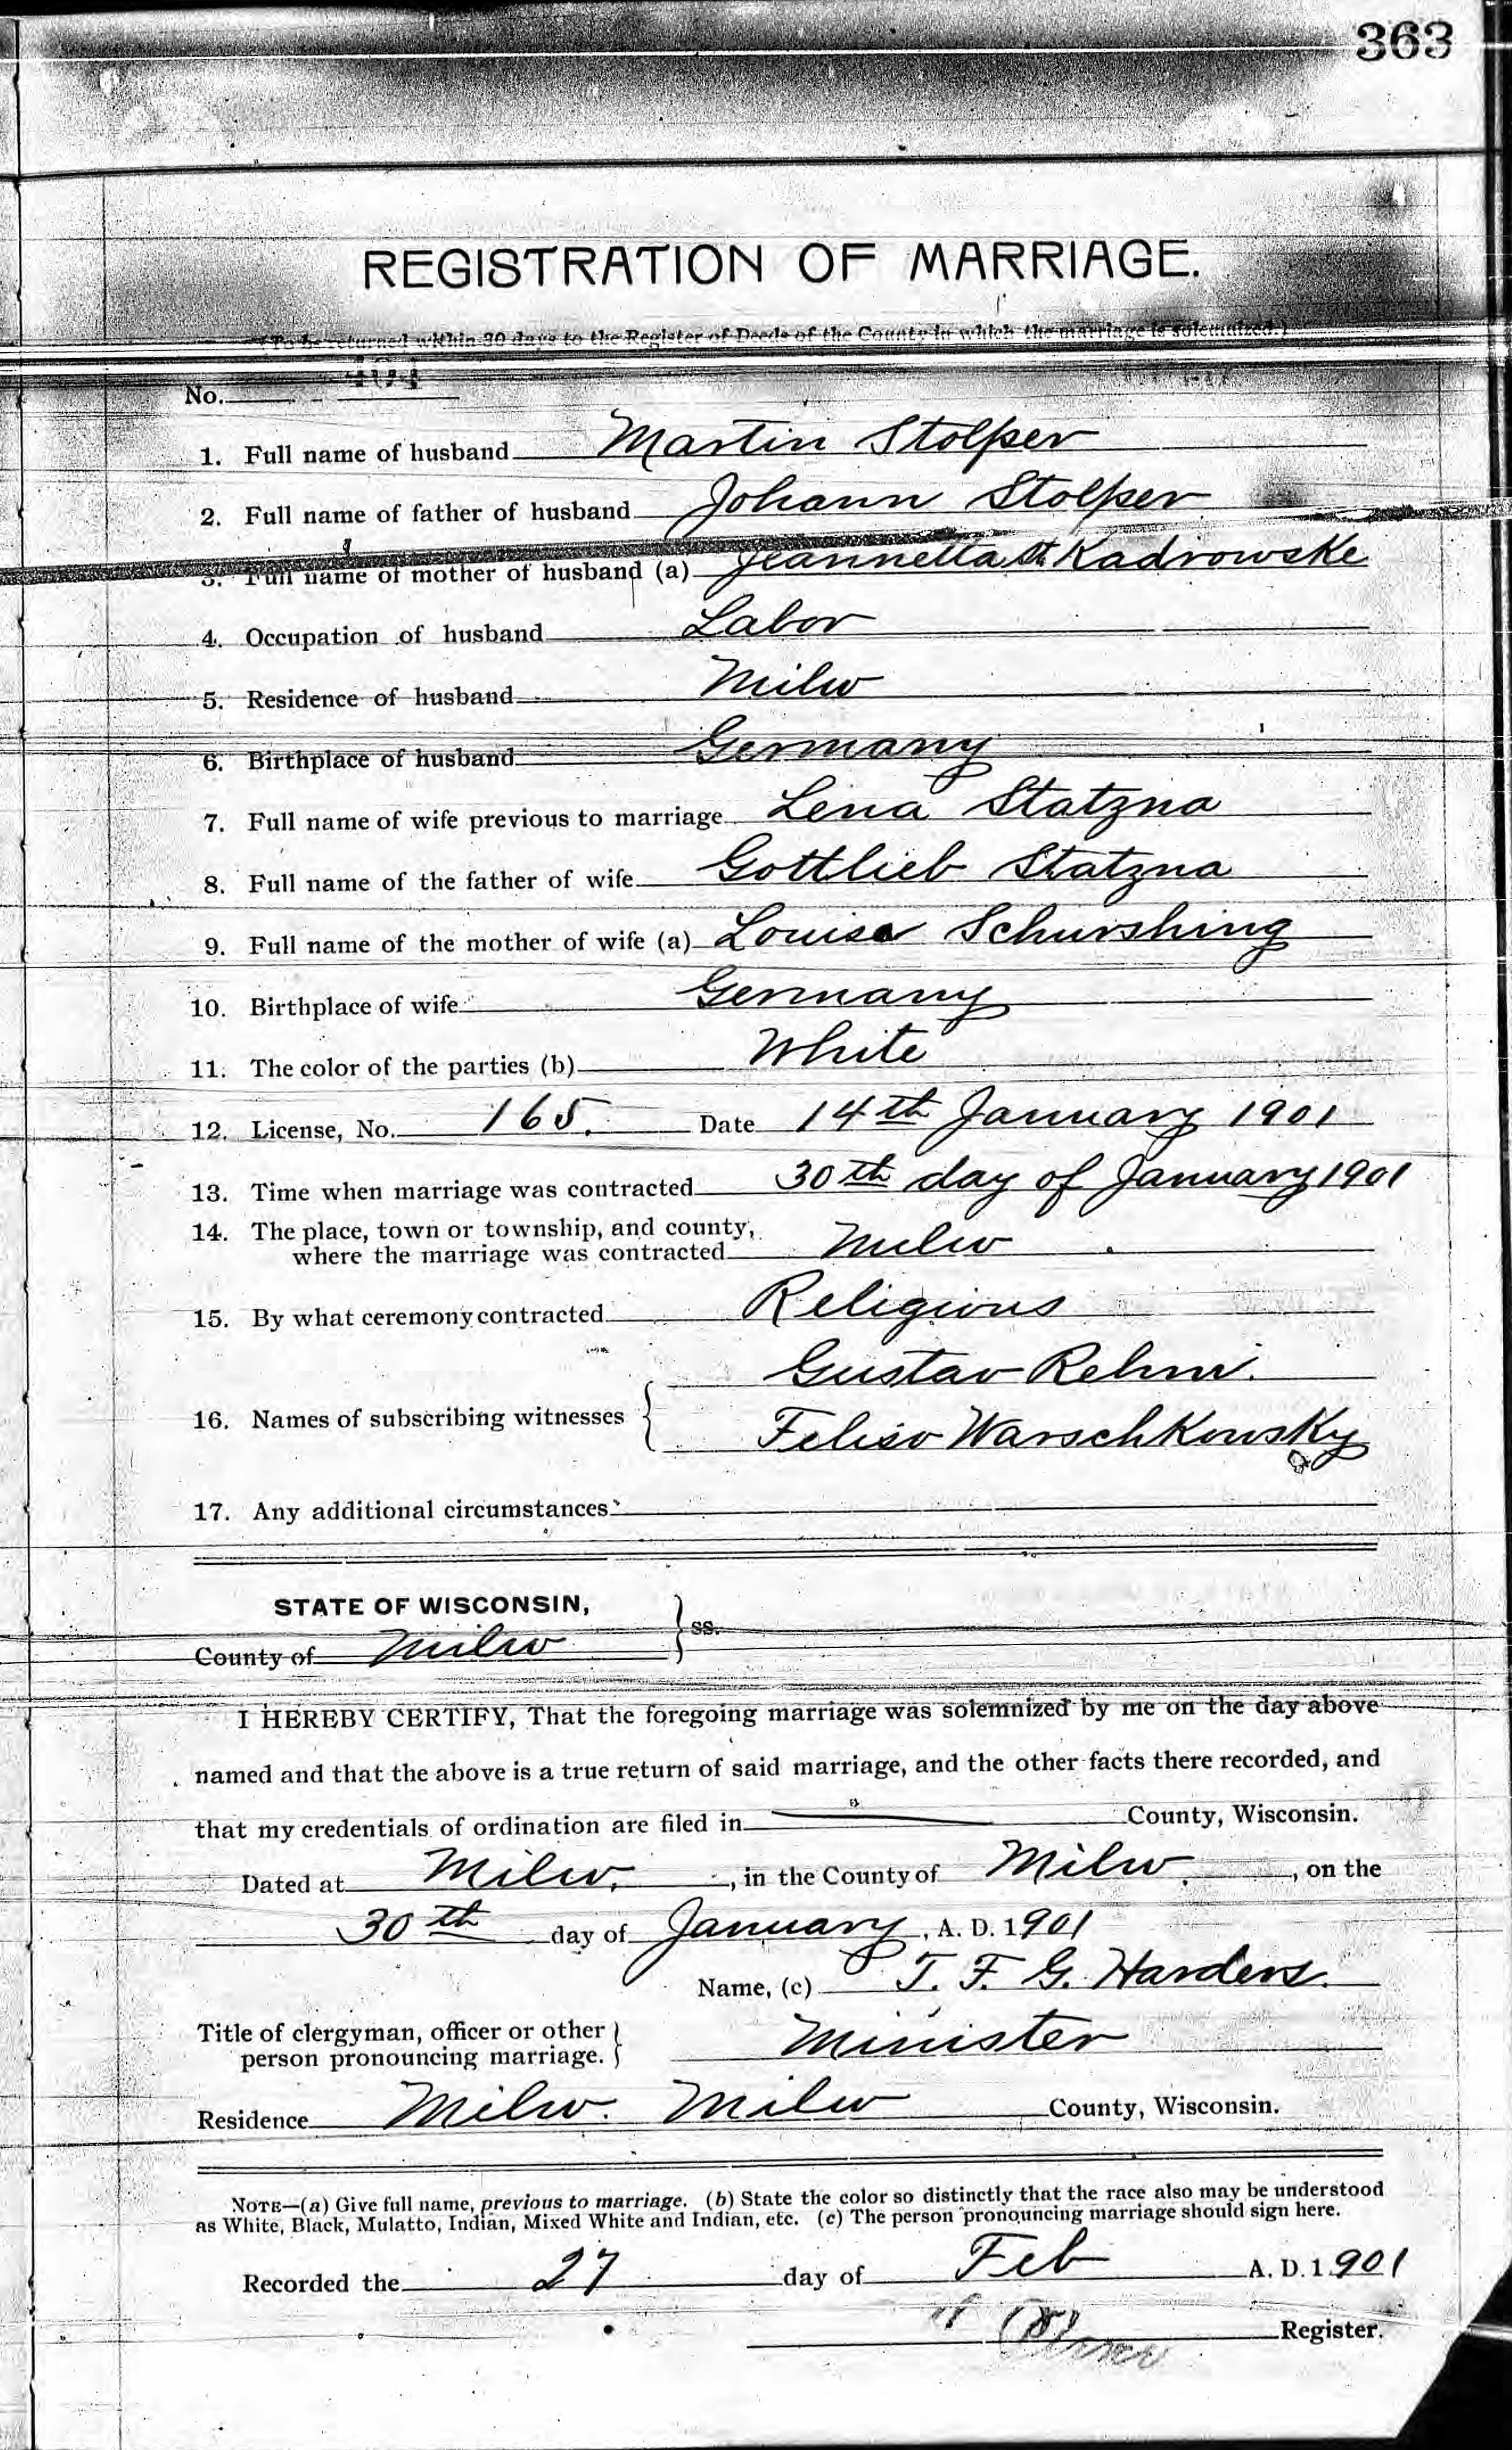 363
REGISTRATION OF MARRIAGE.
(To be returned within 30 days to the Register of Deeds of the County in which the marriage is solemnized.)
No.
1. Full name of husband Martin Stolper
2. Full name of father of husband Johann Stolper
3. Full name of mother of husband (a) Jeannetta Kadrowske
4. Occupation of husband Labor
5. Residence of husband Milw
6. Birthplace of husband Germany
7. Full name of wife previous to marriage Lena Statzna
8. Full name of the father of wife Gottlieb Statzna
9. Full name of the mother of wife (a) Louisa Schurshing
10. Birthplace of wife Germany
11. The color of the parties (b) White
12. License, No. 165. Date 14th January 1901
13. Time when marriage was contracted 30th day of January 1901
14. The place, town or township, and county,
where the marriage was contracted Milw
15. By what ceremony contracted Religious
Gustav Rehm.
16. Names of subscribing witnesses
Warschkowsky
17. Any additional circumstances
STATE OF WISCONSIN,
ss.
County of Milw
I HEREBY CERTIFY, That the foregoing marriage was solemnized by me on the day above
named and that the above is a true return of said marriage, and the other facts there recorded, and
that my credentials of ordination are filed in County, Wisconsin.
Dated at Milw., in the County of Milw., on the
30th day of January, A. D. 1901
Name, (c) T. F. G. Harders.
Title of clergyman, officer or other
person pronouncing marriage. Minister
Residence Milw. Milw County, Wisconsin.
NOTE—(a) Give full name, previous to marriage. (b) State the color so distinctly that the race also may be understood
as White, Black, Mulatto, Indian, Mixed White and Indian, etc. (c) The person pronouncing marriage should sign here.
Recorded the 27 day of Feb A. D. 1901
Register.